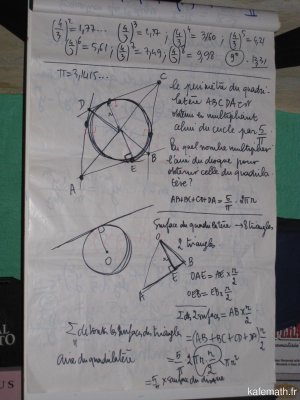 (4/3)² = 1,77... (4/3)³ =
; (4/3)⁵ = 4,21
(4/3)⁶ = 5,61 ; (4/3)⁷ = 7,49 ; (4/3)⁸ = 9,98
π = 3,1415...
C
D
A
E
B
le périmètre du quadri-
latère ABCDA est
obtenu en multipliant
celui du cercle par 5/π
Par quel nombre multiplier
l'aire du disque pour
obtenir celle du quadrila-
tère?
AB+BC+CD+DA = 5/π · 2πr
Surface du quadrilatère → 8 triangles
2 triangles
O
B
E
A
OAE = AE × r/2
OEB = EB × r/2
Σ des 2 surfaces = AB × r/2
P
O
Σ de toutes les surfaces des triangles = (AB + BC + CD + DA) r/2
aire du quadrilatère = 5/π
= 5/π × surface du disque
kafemath.fr